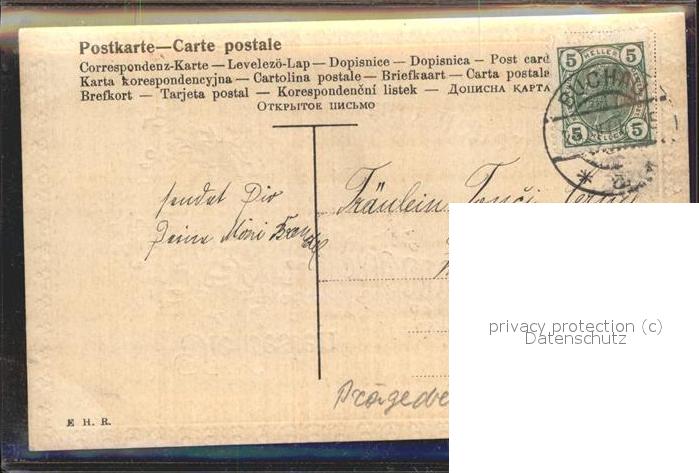 Postkarte—Carte postale
Correspondenz-Karte — Levelező-Lap — Dopisnice — Dopisnica — Post card
Karta korespondencyjna — Cartolina postale — Briefkaart — Carta postala
Brefkort — Tarjeta postal — Korespondenční listek — Дописна карта
Открытое письмо
5 HELLER 5
5 5
BUCHAU
sendet Dir
Deine Mimi
Fräulein
privacy protection (c)
Datenschutz
Prägedr
E H. R.